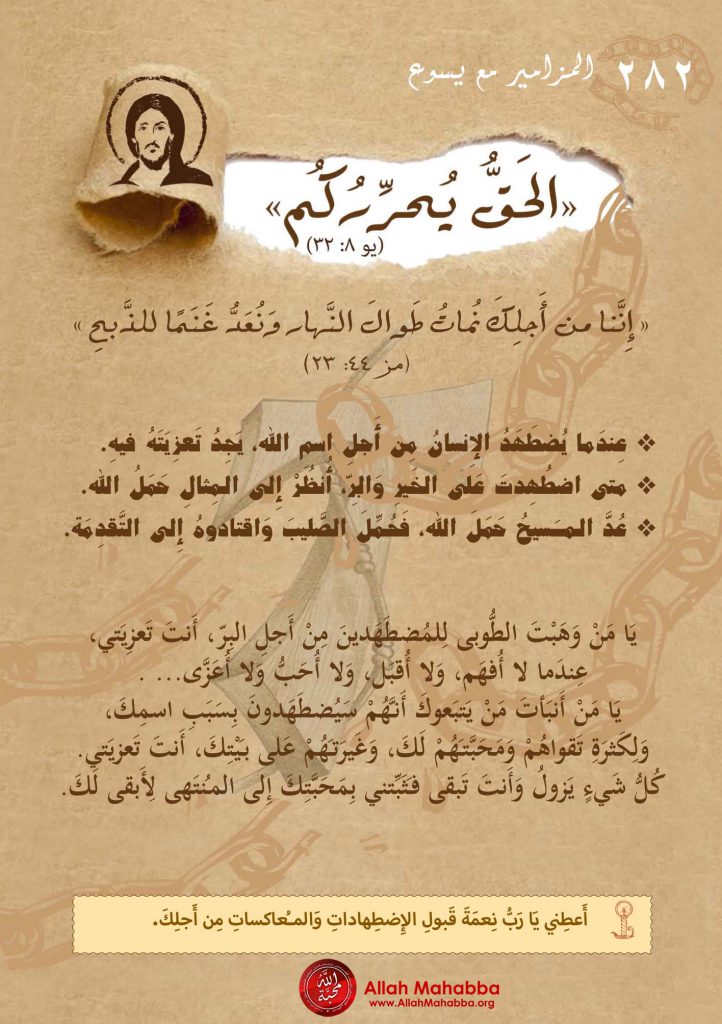 ٢٨٢ المزامير مع يسوع
«الحَقُّ يُحرِّرُكُم»
(يو ٨: ٣٢)
« إِنَّنا من أَجلِكَ نُماتُ طَوالَ النَّهار وَنُعَدُّ غَنَمًا للذَّبحِ »
(مز ٤٤: ٢٣)
❖ عِندَما يُضطَهَدُ الإنسانُ مِن أَجلِ اسمِ الله، يَجِدُ تَعزِيَتَهُ فيهِ.
❖ متى اضطُهِدتَ عَلَى الخَيرِ وَالبِرِّ، أُنظُرْ إِلى المثالِ حَمَلُ الله.
❖ عُدَّ المَسيحُ حَمَلَ الله، فَحُمِّلَ الصَّليبَ وَاقتادوهُ إِلى التَّقدِمَة.
يَا مَنْ وَهَبْتَ الطُّوبى لِلمُضطَهَدينَ مِنْ أَجلِ البِرّ، أَنتَ تَعزِيَتي،
عِندَما لا أُفهَم، وَلا أُقبَل، وَلا أُحَبُّ وَلا أُعَزَّى... .
يَا مَنْ أَنبَأتَ مَنْ يَتبَعوكَ أَنَّهُمْ سَيُضطَهَدونَ بِسَبَبِ اسمِكَ،
وَلِكَثرَةِ تَقواهُمْ وَمَحَبَّتَهُمْ لَكَ، وَغَيرَتَهُمْ عَلى بَيْتِكَ، أَنتَ تَعزيَتي.
كُلُّ شَيءٍ يَزولُ وَأَنتَ تَبقى فَثَبِّتني بِمَحَبَّتِكَ إِلى المُنتَهى لِأَبقى لَكَ.
أَعطِني يَا رَبُّ نِعمَةَ قَبولِ الإِضطِهاداتِ وَالمُعاكساتِ مِن أَجلِكَ.
الله محبة
Allah Mahabba
www.AllahMahabba.org